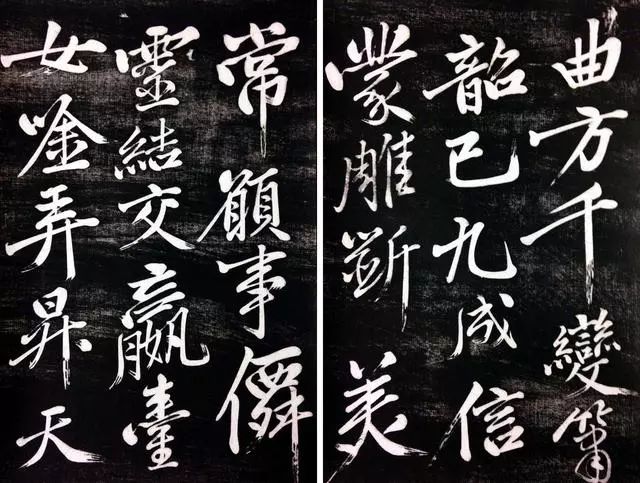 曲方千變簫
韶已九成信
蒙雕斲美
常願事僊
靈結交嬴臺
女唫弄昇天